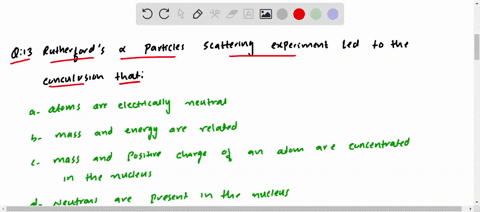 Q:13 Rutherford's α Particles Scattering experiment led to the
conculusion that:
a- atoms are electrically neutral
b- mass and energy are related
c- mass and positive charge of an atom are concentrated
in the nucleus
d- Neutrons are present in the nucleus